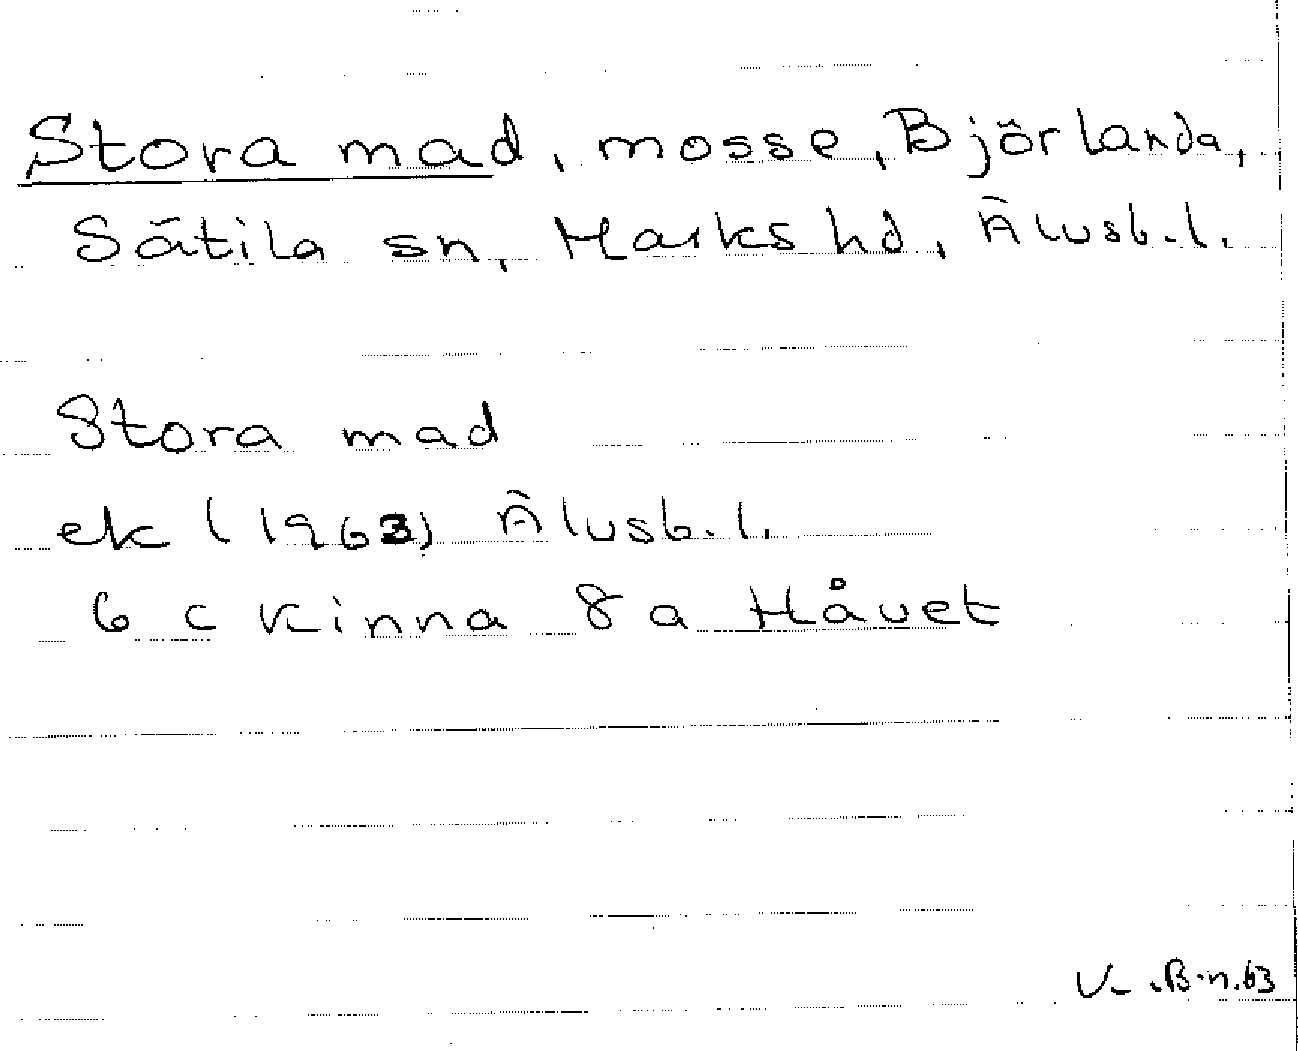 Stora mad, mosse, Björlanda,
Sätila sn, Marks hd, Älvsb. l.
Stora mad
ek (1963) Älvsb. l.
6 c Kinna 8 a Håvet
V. B-n. 63